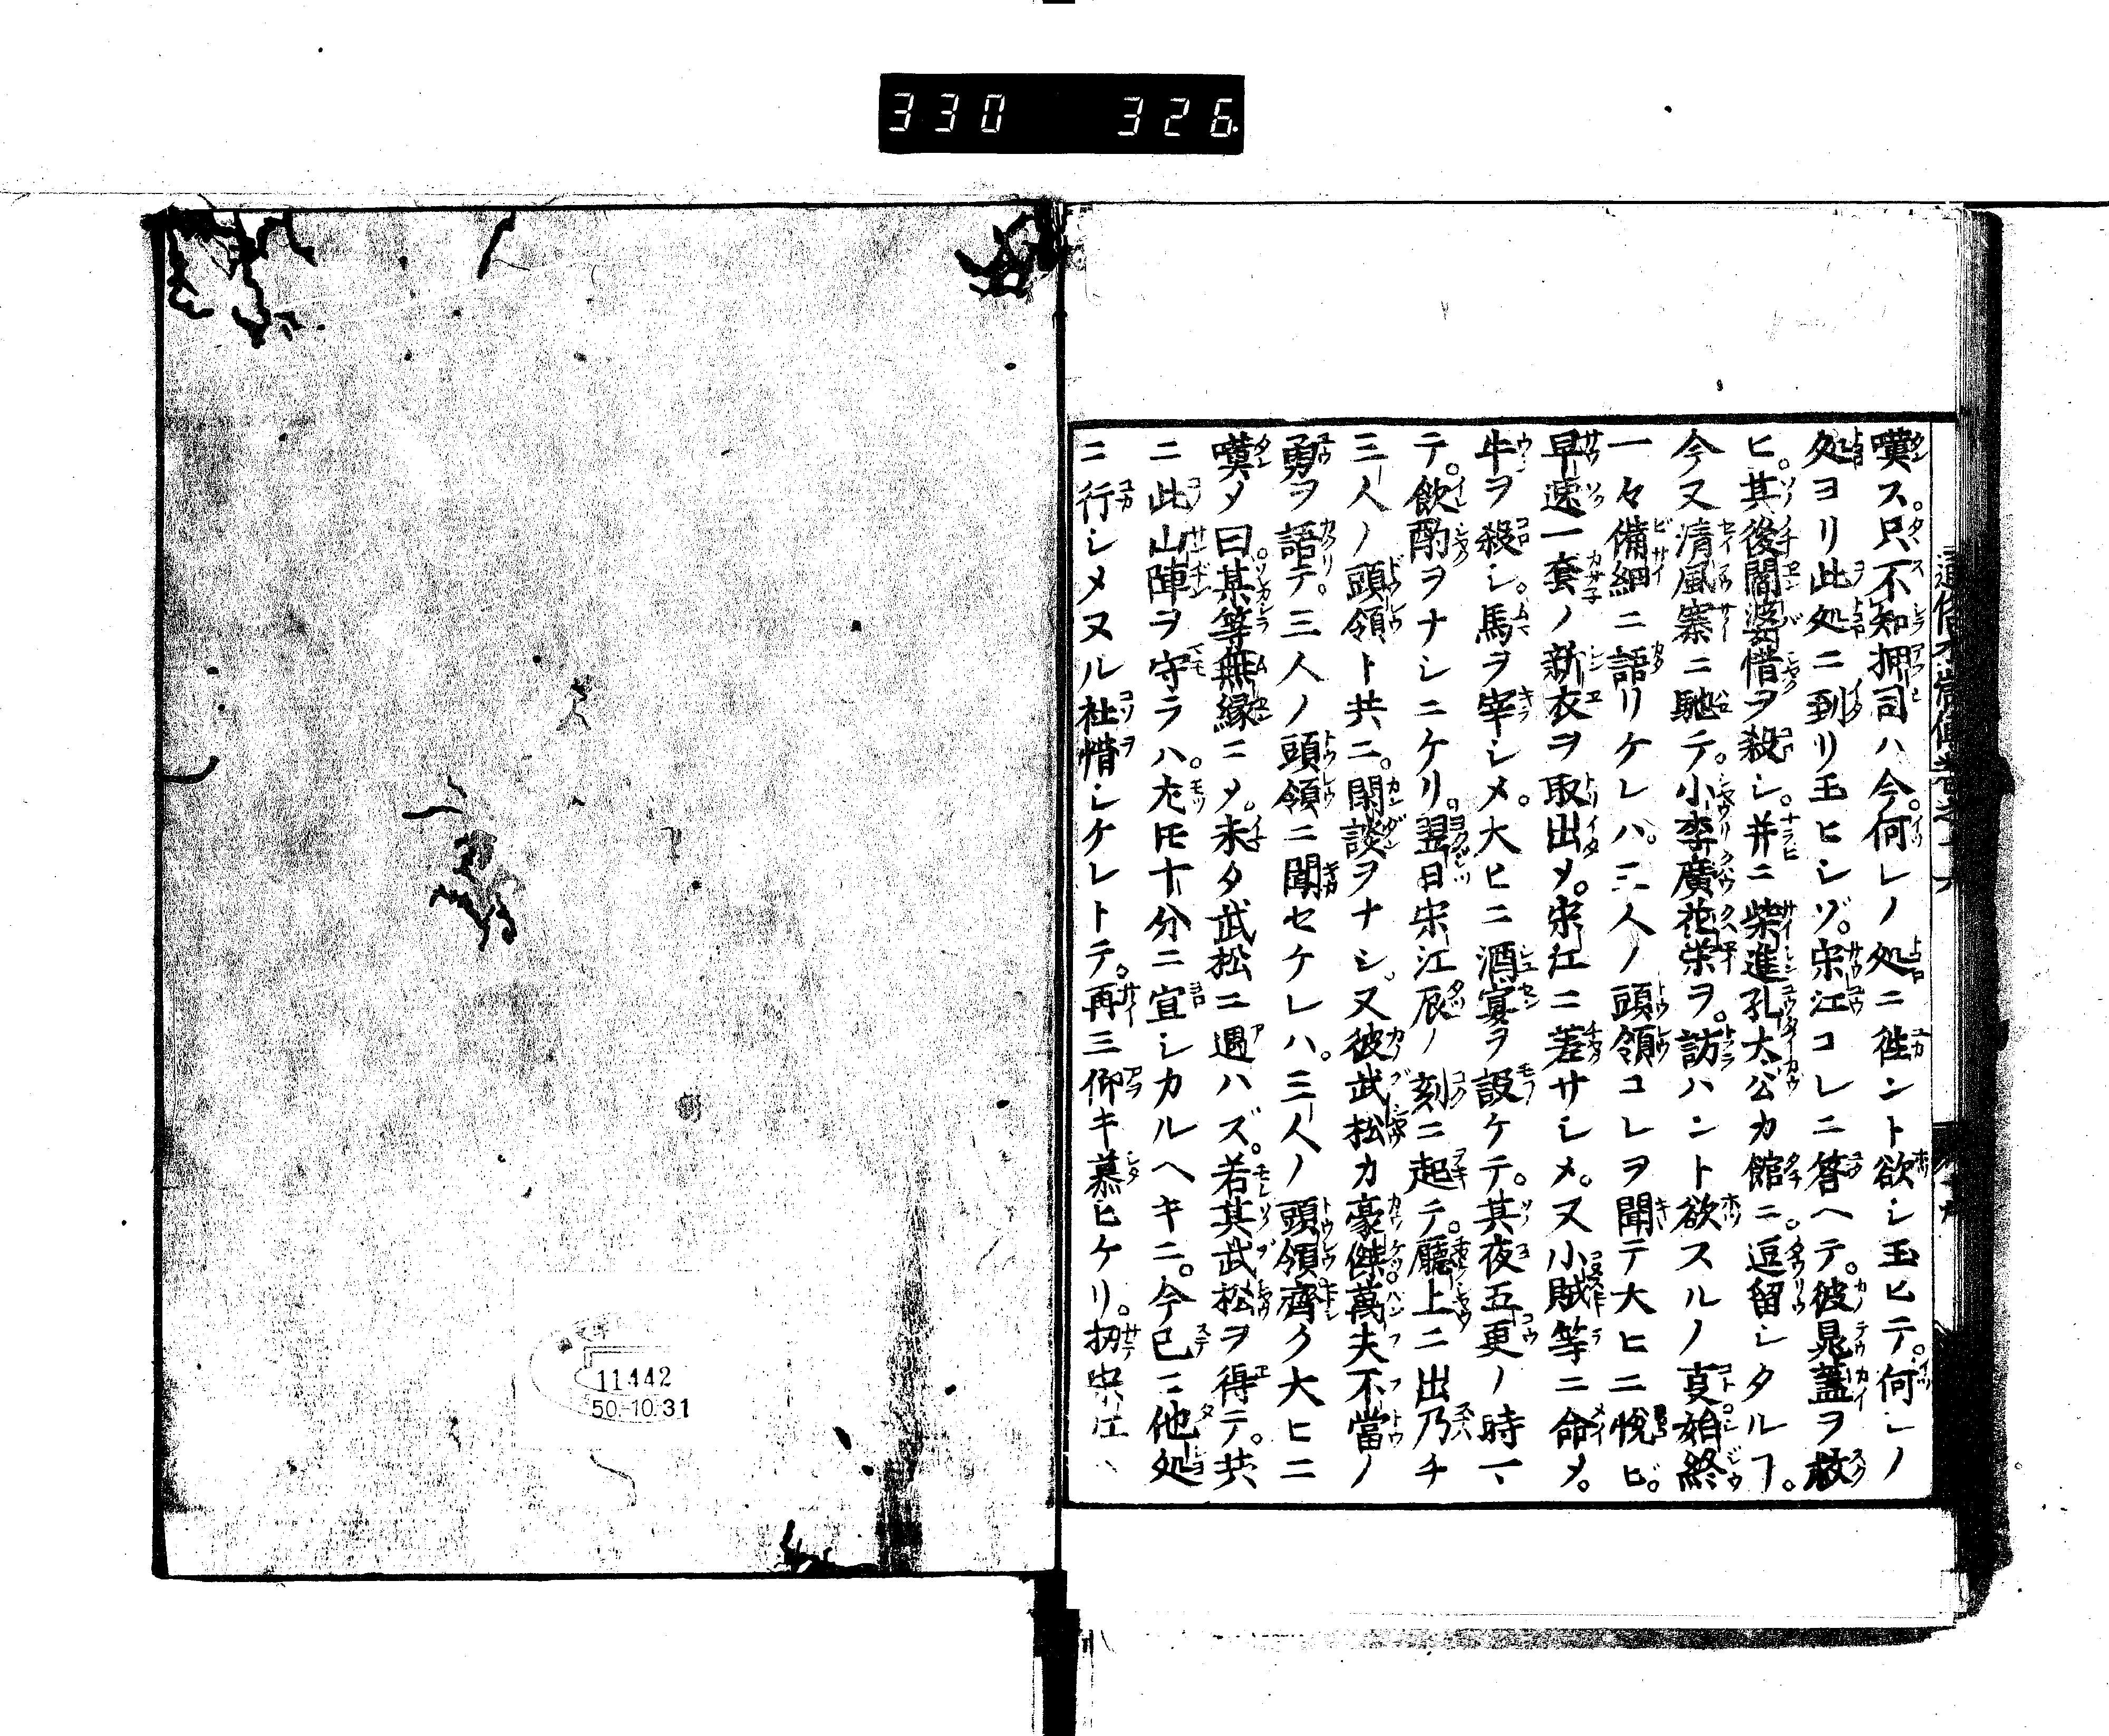 330 326
嘆ス。只不知押司ハ今。何レノ処ニ徃ント欲シ玉ヒテ。何レノ
処ヨリ此処ニ到リ玉ヒシゾ。宋江コレニ答ヘテ。彼晁蓋ヲ救
ヒ。其後閻婆惜ヲ殺シ。并ニ柴進孔太公カ館ニ。逗留シタルヿ。
今又清風寨ニ馳テ。小李廣花栄ヲ。訪ハント欲スルノ㕝始終
一々備細ニ語リケレハ。三人ノ頭領コレヲ聞テ大ヒニ悦ビ。
早速一套ノ新衣ヲ取出メ。宋江ニ差サシメ。又小賊等ニ命メ。
牛ヲ殺シ。馬ヲ宰シメ。大ヒニ酒宴ヲ設ケテ。其夜五更ノ時マ
テ。飲酌ヲナシニケリ。翌日宋江辰ノ刻ニ起テ。廳上ニ出乃チ
三人ノ頭領ト共ニ。閑談ヲナシ。又彼武松カ豪傑。萬夫不當ノ
勇ヲ語テ。三人ノ頭領ニ聞セケレハ。三人ノ頭領齊ク大ヒニ
嘆メ曰。某等無縁ニメ。未タ武松ニ遇ハズ。若其武松ヲ得テ。共
ニ此山陣ヲ守ラハ。尤モ十分ニ宜シカルヘキニ。今已ニ他処
ニ行シメヌル社惜シケレトテ。再三仰キ慕ヒケリ。扨宋江ハ
11442
50.-10.31